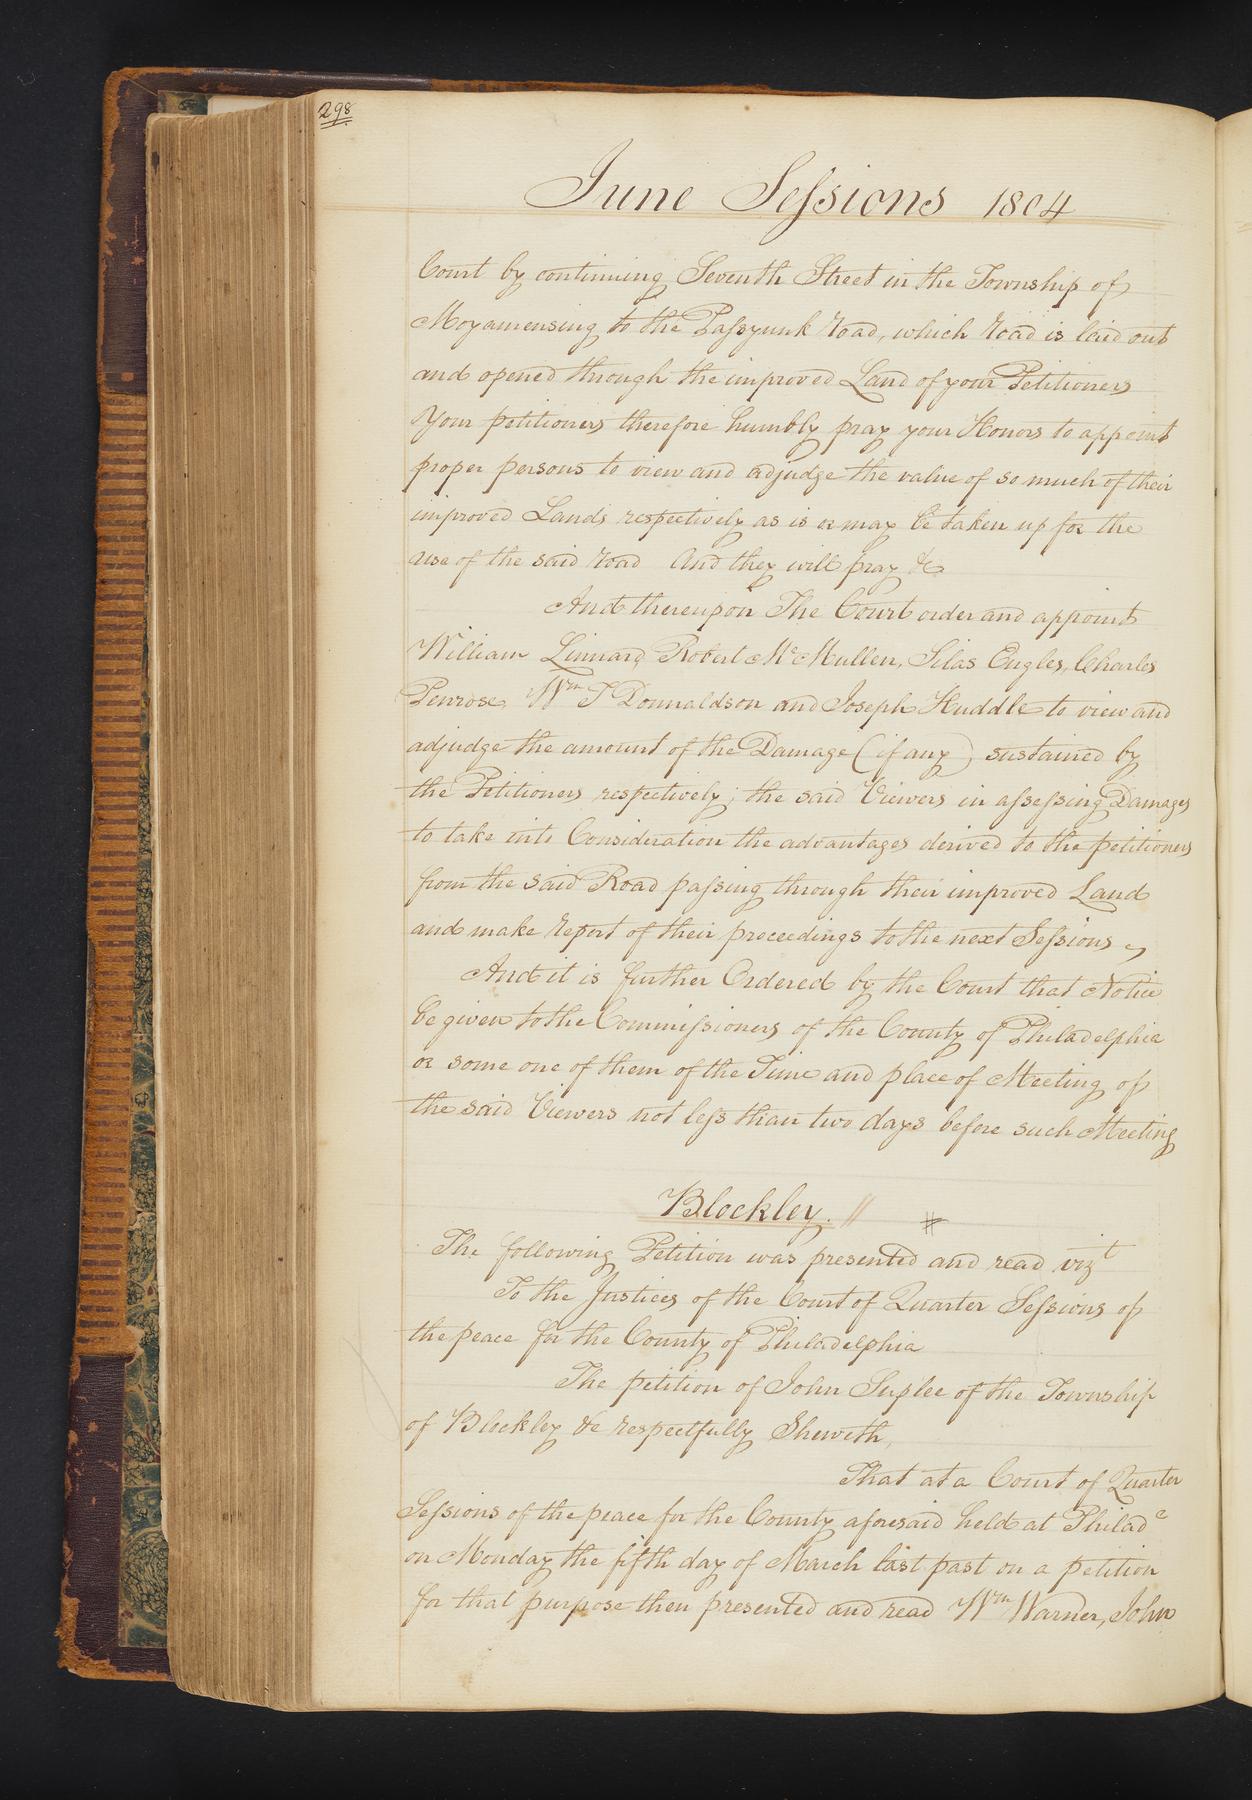 298
June Sessions 1804
Court by continuing Seventh Street in the Township of
Moyamensing to the Passyunk road, which road is laid out
and opened through the improved Land of your Petitioners
Your petitioners therefore humbly pray your Honors to appoint
proper persons to view and adjudge the value of so much of their
improved Lands respectively as is or may be taken up for the
use of the said road And they will pray &c
And thereupon The Court order and appoint
William Linnard Robert McMullen, Silas Engles, Charles
Penrose, Wm T Donnaldson and Joseph Huddle to view and
adjudge the amount of the Damage (if any) sustained by
the Petitioners respectively; the said Viewers in assessing Damages
to take into Consideration the advantages derived to the petitioners
from the said Road passing through their improved Land
and make report of their proceedings to the next Sessions
And it is further Ordered by the Court that Notice
be given to the Commissioners of the County of Philadelphia
or some one of them of the Time and place of Meeting of
the said Viewers not less than two days before such Meeting
Blockley. //
#
The following Petition was presented and read vizt
To the Justices of the Court of Quarter Sessions of
the peace for the County of Philadelphia
The petition of John Suplee of the Township
of Blockley &c respectfully Sheweth,
That at a Court of Quarter
Sessions of the peace for the County aforesaid held at Philada
on Monday the fifth day of March last past on a petition
for that purpose then presented and read Wm Warner, John